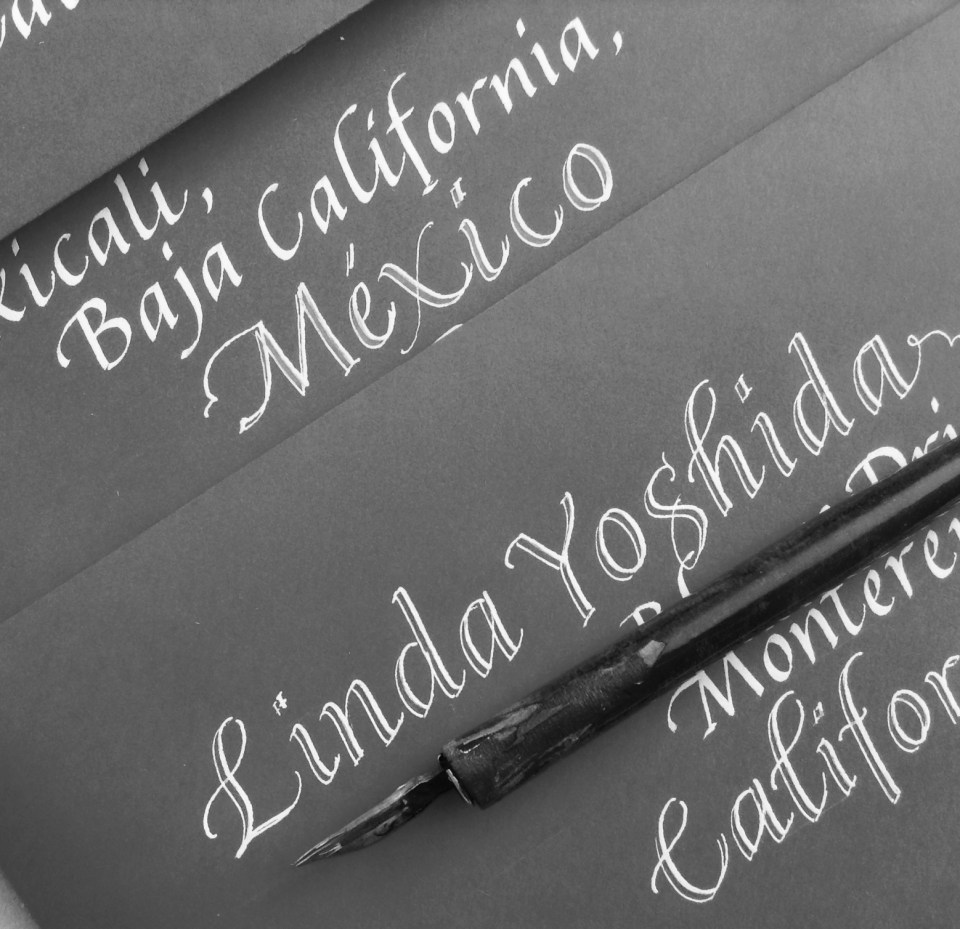 xicali,
Baja California,
México
Linda Yoshida
Dri
Montere
Califor